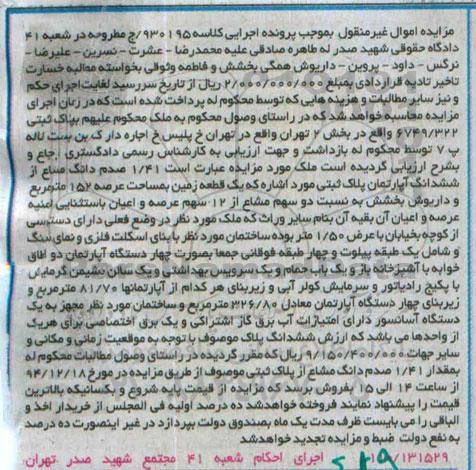 مزایده اموال غیرمنقول بموجب پرونده اجرایی کلاسه ۹۳۰۱۹۵/ج مطروحه در شعبه ۴۱
دادگاه حقوقی شهید صدر له طاهره صادقی علیه محمدرضا - عشرت - نسرین - علیرضا -
نرگس - داود - پروین - داریوش همگی بخشش و فاطمه وثوقی بخواسته مطالبه خسارت
تاخیر تادیه قراردادی بمبلغ ۲/۰۰۰/۰۰۰/۰۰۰ ریال از تاریخ سررسید لغایت اجرای حکم
و نیز سایر مطالبات و هزینه هایی که توسط محکوم له پرداخت شده است که در زمان اجرای
مزایده محاسبه خواهد شد که در راستای وصول محکوم به ملک محکوم علیهم بپلاک ثبتی
۶۷۴۹/۳۲۲ واقع در بخش ۲ تهران واقع در تهران خ پلیس خ اجاره دار ک بن بست لاله
پ ۷ توسط محکوم له بازداشت و جهت ارزیابی به کارشناس رسمی دادگستری ارجاع و
بشرح ارزیابی گردیده است ملک مورد مزایده عبارت است ۱/۴۱ صدم دانگ مشاع از
ششدانگ آپارتمان پلاک ثبتی مورد اشاره که یک قطعه زمین بمساحت عرصه ۱۵۲ مترمربع
و داریوش بخشش به نسبت دو سهم مشاع از ۱۲ سهم عرصه و اعیان باستثنایی اعنیه
عرصه و اعیان آن بقیه آن بنام سایر وراث که ملک مورد نظر در وضع فعلی دارای دسترسی
از کوچه بخیابان با عرض ۱/۵۰ متر بوده ساختمان مورد نظر با بنای اسکلت فلزی و نمای سنگ
و شامل یک طبقه پیلوت و چهار طبقه فوقانی جمعا بصورت چهار دستگاه آپارتمان دو اطاق
خوابه با آشپزخانه باز و یک باب حمام و یک سرویس بهداشتی و یک سالن نشیمن گرمایش
با پکیج رادیاتور و سرمایش کولر آبی و زیربنای هر کدام از آپارتمانها ۸۱/۷۰ مترمربع و
زیربنای چهار دستگاه آپارتمان معادل ۳۲۶/۸۰ مترمربع و ساختمان مورد نظر مجهز به یک
دستگاه آسانسور دارای امتیازات آب برق گاز اشتراکی و یک برق اختصاصی برای هریک
از واحدها می باشد که ارزش ششدانگ پلاک موصوف با توجه به موقعیت زمانی و مکانی و
سایر جهات ۹/۱۵۰/۴۰۰/۰۰۰ ریال که مقرر گردیده در راستای وصول مطالبات محکوم له
بمقدار ۱/۴۱ صدم دانگ مشاع از پلاک ثبتی موصوف از طریق مزایده در مورخ ۹۴/۱۲/۱۸
از ساعت ۱۴ الی ۱۵ بفروش برسد که مزایده از قیمت پایه شروع و بکسانیکه بالاترین
قیمت را پیشنهاد نمایند فروخته خواهد شد ده درصد اولیه فی المجلس از خریدار اخذ و
الباقی را می بایست ظرف مدت یک ماه بصندوق دولت بپردازد در غیر اینصورت ده درصد
به نفع دولت ضبط و مزایده تجدید خواهد شد
۱۱۰/۱۳۱۵۲۹ اجرای احکام شعبه ۴۱ مجتمع شهید صدر تهران